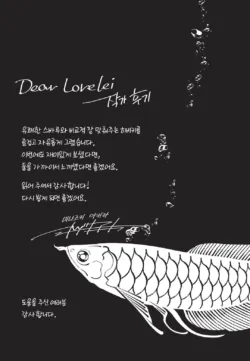 Dear Lorelei
작가 후기
유쾌한 스바루와 비교적 잘 맞춰주는 히비키를
즐겁고 자유롭게 그렸습니다.
이번에도 재미있게 보셨다면,
둘을 가까이서 느끼셨다면 좋겠어요.
읽어 주셔서 감사합니다!
다시 뵙게 되면 좋겠어요.
도움을 주신 여러분
감사합니다.